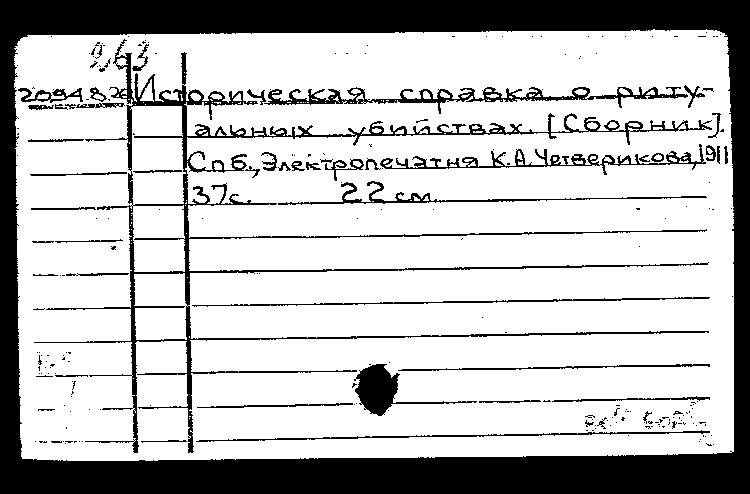 263
Историческая справка о риту-
альных убийствах. [Сборник].
Спб., Электропечатня К.А. Четверикова, 1911
37с. 22 см.